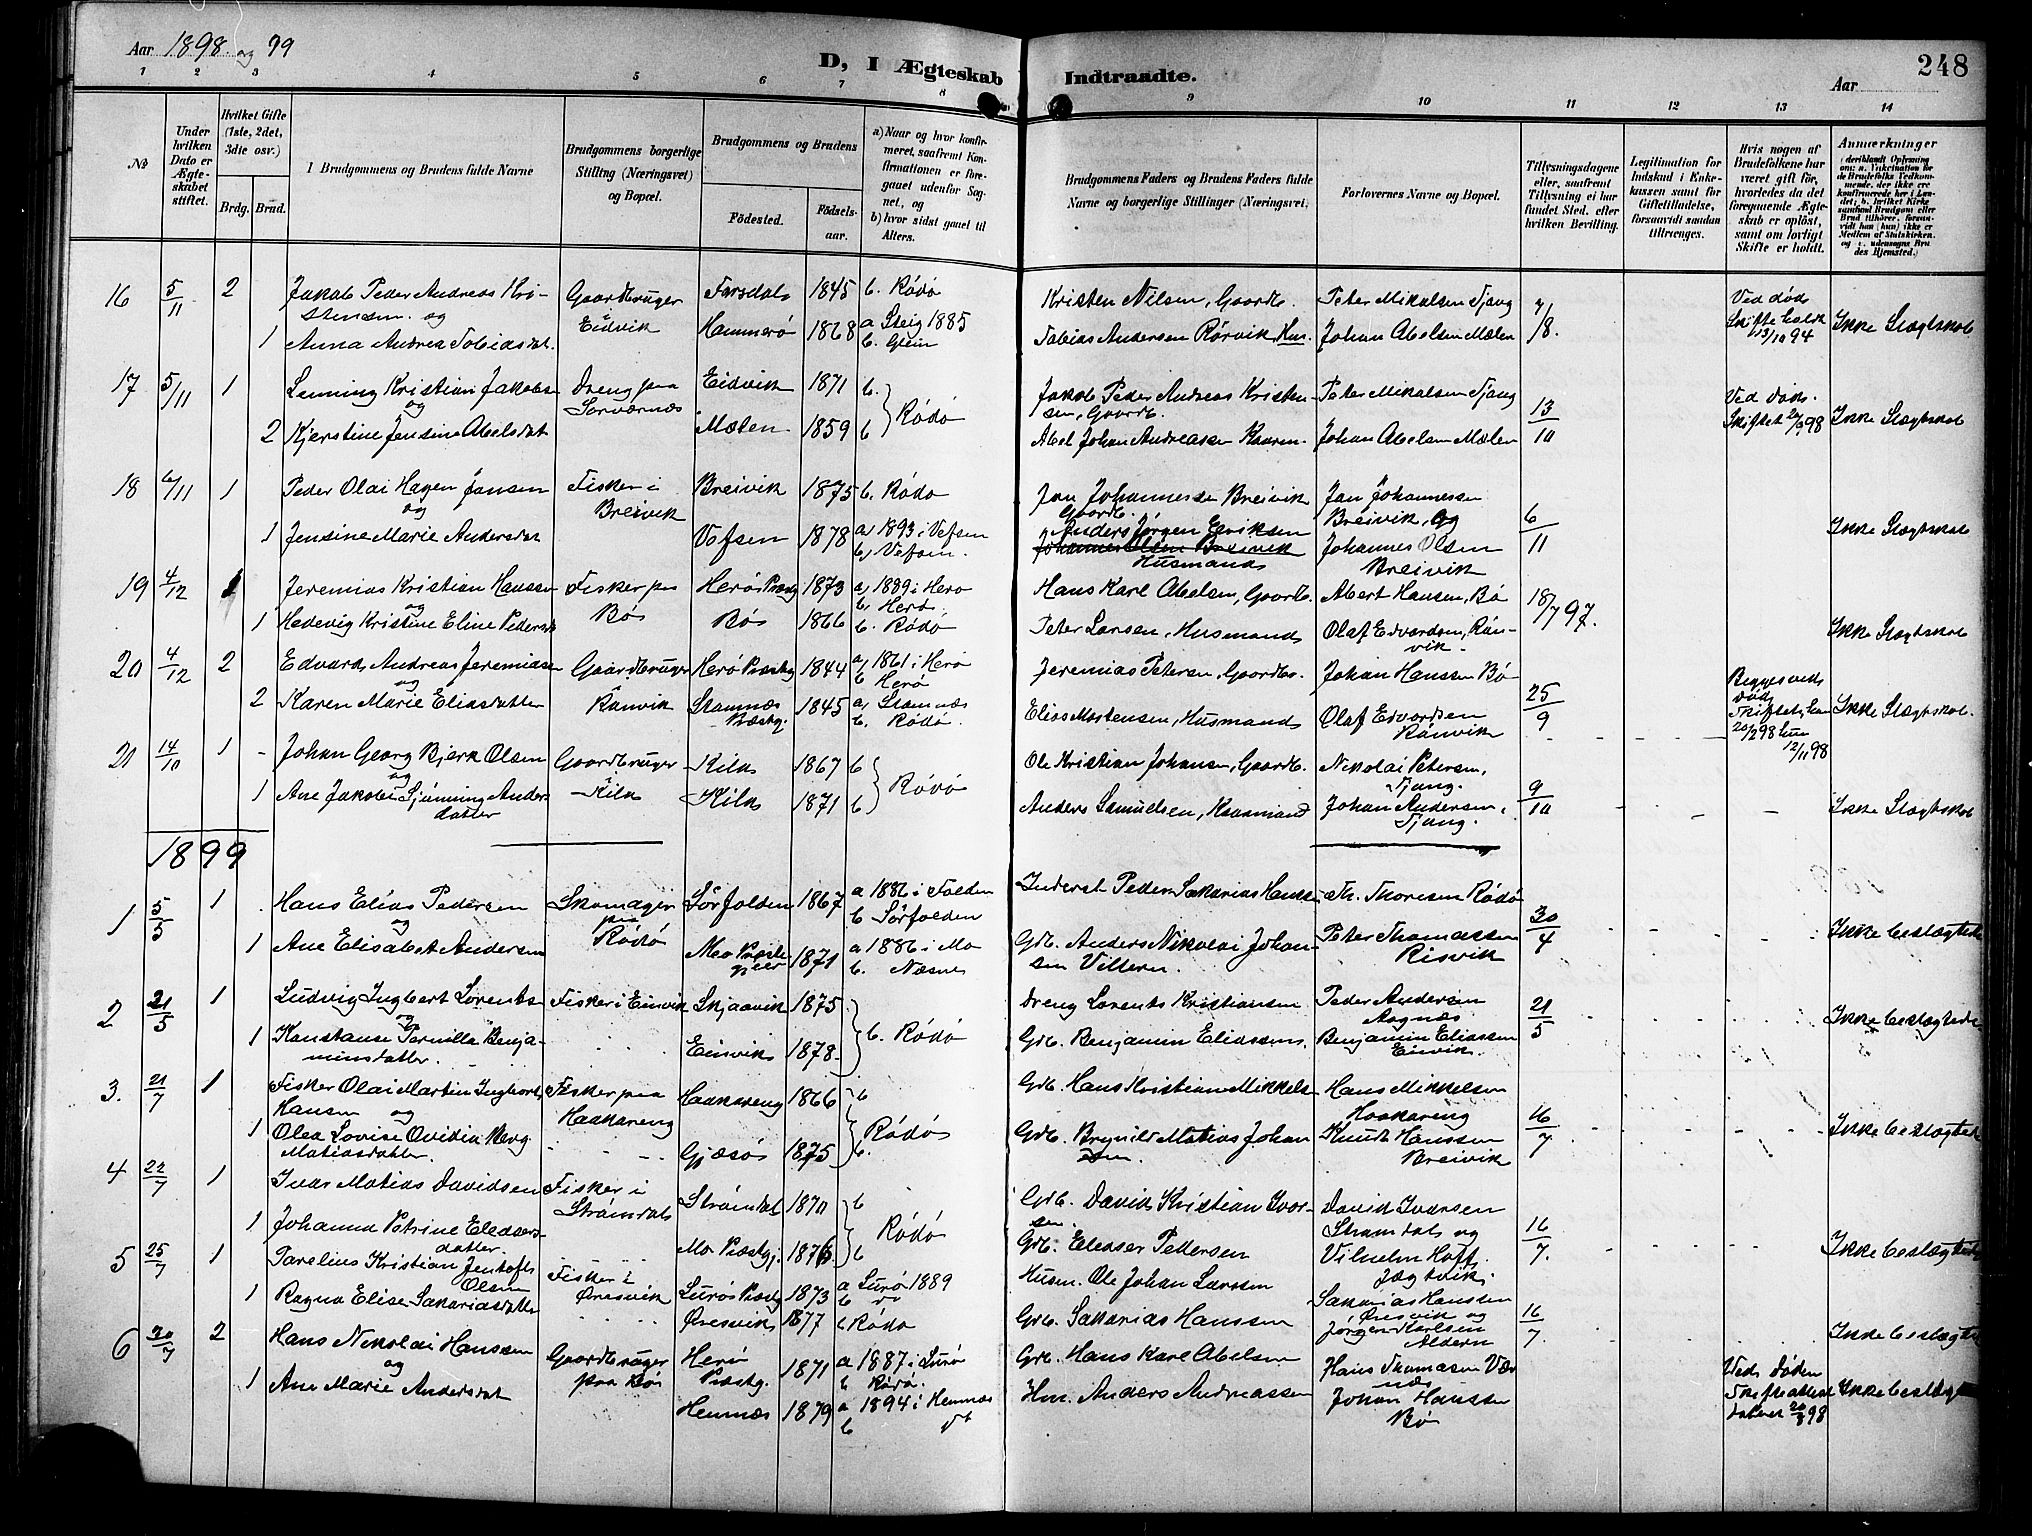 Aar 1898 og 99
D, I Ægteskab Indtraadte.
248
Aar
1 2 3 4 5 6 7 8 9 10 11 12 13 14
No
Under hvilken Dato er Ægteskabet stiftet.
Hvilket Gifte (1ste, 2det, 3die osv.)
Brdg. Brud.
I Brudgommens og Brudens fulde Navne
Brudgommens borgerlige Stilling (Næringsvei) og Bopæl.
Brudgommens og Brudens
Fødested.
Fødselsaar.
a) Naar og hvor konfirmeret, saafremt Konfirmationen er foregaaet udenfor Sognet, og
b) hvor sidst gaaet til Alters.
Brudgommens Faders og Brudens Faders fulde Navne og borgerlige Stillinger (Næringsvei)
Forlovernes Navne og Bopæl.
Tillysningsdagene eller, saafremt Tillysning ei har fundet Sted, efter hvilken Bevilling.
Legitimation for Indskud i Enkekassen samt for Giftetilladelse, forsaavidt saadan tiltrænges.
Hvis nogen af Brudefolkene har været gift før, hvorledes da det foregaaende Ægteskab er opløst, samt om lovligt Skifte er holdt.
Anmærkninger
16 5/11 2 Jakob Peder Andreas Kristensen og Gaardbruger Eidvik Farsdal 1845 b. Rødø Kristen Nilsen, Gaardb. Peter Mikalsen Tjong 7/8. Ved død Skifte holdt 13/10 94 Ikke Slægtskab
1 Anna Andrea Tobiasdat. Hammerø 1868 a Steig 1885 b. Glein Tobias Andersen Rørvik Hus. Johan Abelsen Mælen
17 5/11 1 Lenning Kristian Jakobs og Dreng paa Sørværnæs Eidvik 1871 b. Rødø Jakob Peder Andreas Kristensen, Gaardb. Peter Mikalsen Tjong 13/10 Ved død. Skiftet 98 Ikke Slægtskab
2 Kjerstine Jensine Abelsdat Mælen 1859 b Abel Johan Andreassen Kaarm. Johan Abelsen Mælen
18 6/11 1 Peder Olai Hagen Jansen og Fisker i Breivik Breivik 1875 b. Rødø Jan Johannessen Breivik Gaardb. Jan Johannessen Breivik, og 6/11 Ikke Slægtskab
1 Jensine Marie Andersdat Vefsen 1878 a) 1893 i Vefsen b) Vefsen. Anders Jørgen Eriksen Johannes Olsen Breivik Husmand Johannes Olsen Breivik
19 4/12 1 Jeremias Kristian Hanssen og Fisker paa Bø Herø Præstg 1873 a) 1889 i Herø b. Herø. Hans Karl Abelsen, Gaardb. Abert Hansen, Bø 18/7 97. Ikke Slægtskab
1 Hedevig Kristine Eline Pedersd. Bø 1866 b. Rødø Peter Larsen, Husmand Olaf Edvardsen, Rønvik.
20 4/12 2 Edvard Andreas Jeremiass. og Gaardbruger Rønvik Herø Præstg 1844 a) 1861 i Herø b Herø Jeremias Petersen, Gaardb. Johan Hanssen Bø 25/9 Begges ved død Skiftet, han 20/2 98 hun 12/11 98 Ikke Slægtskab.
2 Karen Marie Eliasdatter Stamnæs Præstg. 1845 a) Stamnæs b. Rødø. Elias Mortensen, Husmand Olaf Edvardsen Rønvik
21 14/10 1 - Johan Georg Bjerk Olsen og Gaardbruger Kila Kila 1867 b Rødø Ole Kristian Johansen, Gaardb. Nikolai Petersen, Tjong. 9/10 - - - Ikke Slægtskab
1 Ane Jakobe Sjønning Andersdatter Kila 1871 b Anders Samuelsen, Kaarmand Johan Andersen, Tjong.
1899
1 5/5 1 Hans Elias Pedersen og Skomager paa Rødø Sørfolden 1867 a 1886 i Folden b Sørfolden Inderst Peder Sakarias Hanss. Th. Thoresen Rødø 30/4 Ikke beslægtede
1 Ane Elisabet Andersen Mo Præstegjeld 1871 a 1886 i Mo b. Næsne Grb. Anders Nikolai Johansen Villern. Peter Thomassen Risvik
2 21/5 1 Ludvig Ingbert Lorents. og Fisker i Einvik Skjaavik 1875 b. Rødø Dreng Lorents Kristiansen Peder Andersen Aagnæs 21/5 Ikke beslægtede
1 Konstanse Pernilla Benjaminsdatter. Einvik 1878. Grb. Benjamin Eliassen. Benjamin Eliassen Einvik.
3. 21/7 1 Fisker Olai Martin Ingbort Hansen og Fisker paa Haakareng Haakareng 1866 b Rødø Grb. Hans Kristian Mikkels. Hans Mikkelsen Haakareng 16/7 Ikke beslægtede
1 Olea Lovise Ovidia Mathiasdatter. Gjæsø 1875 b. Grb. Brynild Matias Johansen. Knudt Hanssen Breivik
4 22/7 1 Ivar Matias Davidsen Fisker i Strømdal Strømdal 1870 b Rødø Grb. David Kristian Ivarsen David Ivarsen Strømdal og 16/7. Ikke beslægtede
1 Johanna Petrine Eleasersdatter Mo Præstgj. 1876. b Grb. Eleaser Pedersen Vilhelm Hoff Jægtvik.
5 25/7 1 Parelius Kristian Jentoft Olsen Fisker i Øresvik Lurø Præstg 1873 a Lurø 1889 b do Husm. Ole Johan Larssen Sakarias Hanssen Øresvik og 16/7. Ikke beslægtede
1 Ragna Elise Sakariasdatter Øresvik 1877 b Rødø Grb. Sakarias Hanssen Jørgen Karlsen Aldern
6 30/7 2 Hans Nikolai Hanssen og Gaardbruger paa Bø Herø Præstg. 1871 a 1887 i Lurø b Rødø. Grb. Hans Karl Abelsen Hans Thomassen Værnæs Ved Døden Skifteattest dateret 98 Ikke beslægtede
1 Ane Marie Andersdat Hemnæs 1879 a 1894 i Hemnæs b Hm. Anders Andreassen Johan Hanssen Bø